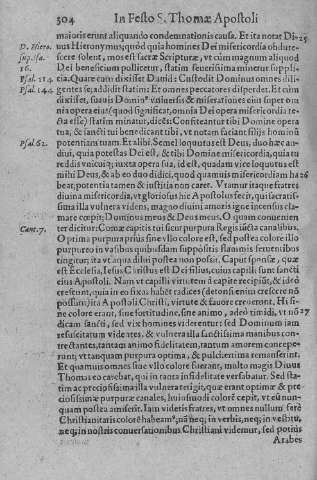 304 In Festo S. Thomæ Apostoli
maioris erunt aliquando condemnationis causa. Et ita notat Di- 25
D. Hiero. uus Hieronymus; quòd quia homines Dei misericordia obdure-
sup. Isa. scere solent, mos est sacræ Scripturæ, vt cùm magnum aliquod
16. Dei beneficium pollicetur, statim seuerissima minetur supplicia.
Psal. 144. Quare cum dixisset Dauid: Custodit Dominus omnes dili-
Psal. 144. gentes se; addidit statim: Et omnes peccatores disperdet. Et cùm
dixisset, suauis Dominus vniuersis & miserationes eius super omnia
opera eius (quod significat, omnia Dei opera misericordia re-
ferta esse) statim minatur, dicẽs: Confiteantur tibi Domine opera
tua, & sancti tui benedicant tibi, vt notam faciant filijs hominũ
Psal. 62. potentiam tuam. Et alibi. Semel loquutus est Deus, duo hæc au-
diui, quia potestas Dei est, & tibi Domine misericordia, quia tu
reddis vnicuiq; iuxta opera sua, id est, quadam vice loquutus est
mihi Deus, & ab eo duo didici, quòd quamuis misericordiam ha- 26
beat, potentia tamen & iustitia non caret. Vtamur itaque fratres
diuina misericordia, vt gloriosus hic Apostolus fecit, qui sacratis-
sima illa vulnera videns, magno diuini amoris igne incensus cla-
mare cœpit; Dominus meus & Deus meus. O quam conuenien
Cant. 7. ter dicitur: Comæ capitis tui sicut purpura Regis iuncta canalibus.
O ptima purpura prius sine vllo colore est, sed postea colore illo
purpureo in vasibus quibusdam suppositis flammis feruentibus
tingitur; ita vt aqua dilui postea non possit. Caput sponsæ, quæ
est Ecclesia, Iesus Christus est Dei filius, cuius capilli sunt sancti
eius Apostoli. Nam vt capilli virtutem à capite recipiũt, & ideò
crescunt, quia in eo fixas habẽt radices (detonsi enim crescere nõ
possunt) ita Apostoli Christi, virtute & fauore creuerunt. Hi si-
ne colore erant, sine fortitudine, sine animo, adeò timidi, vt no 27
dicam sancti, sed vix homines viderentur: sed Dominum iam
resuscitatum videntes, & vulnera illa sanctissima manibus con-
trectantes, tantam animo fidelitatem, tantum amorem concepe-
runt; vt tanquam purpura optima, & pulcherrima remanserint.
Et quamuis omnes illi sine colore fuerant, multo magis Diuus
Thomas eo carebat, qui in tanta infidelitate versabatur. Sed sta-
tim ac preciosissima illa vulnera tetigit, quæ erant optimæ & pre-
ciosissimæ purpuræ canales, huiusmodi colorẽ cepit, vt eũ nun-
quam postea amiserit. Iam videtis fratres, vt omnes nullum ferè
Christianitatis colorẽ habeamus; nã neq; in verbis, neq; in vestitu,
neq; in nostris conuersationibus Christiani videmur, sed potius
Arabes